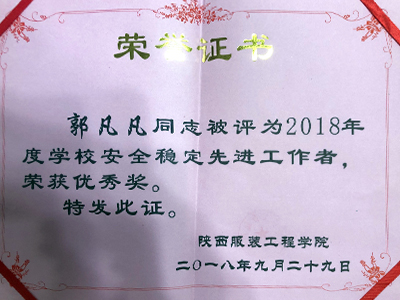 荣誉证书
郭凡凡同志被评为2018年
度学校安全稳定先进工作者，
荣获优秀奖。
特发此证。
陕西服装工程学院
二〇一八年九月二十九日